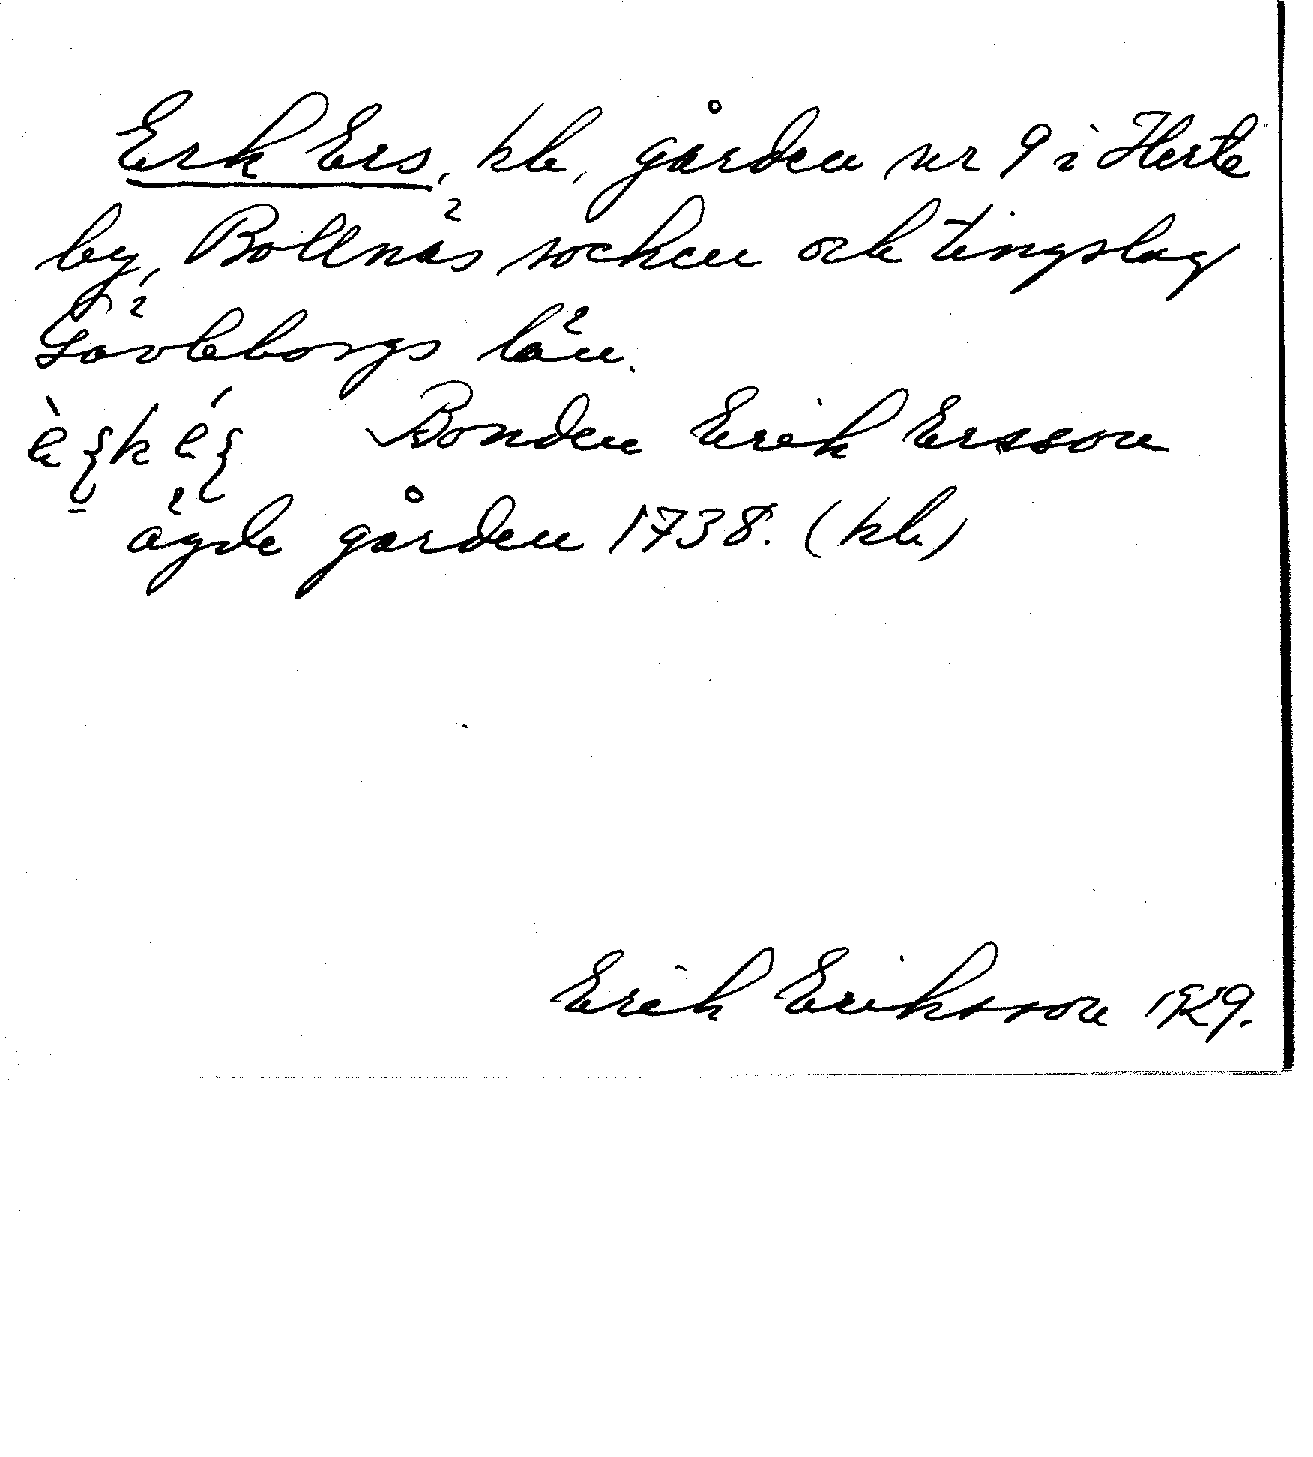 Erk Ers, kb, gården nr 9 i Herte
by, Bollnäs socken och tingslag
Gävleborgs län.
Bonden Erik Ersson
ägde gården 1738. (kb)
Erik Eriksson 1929.